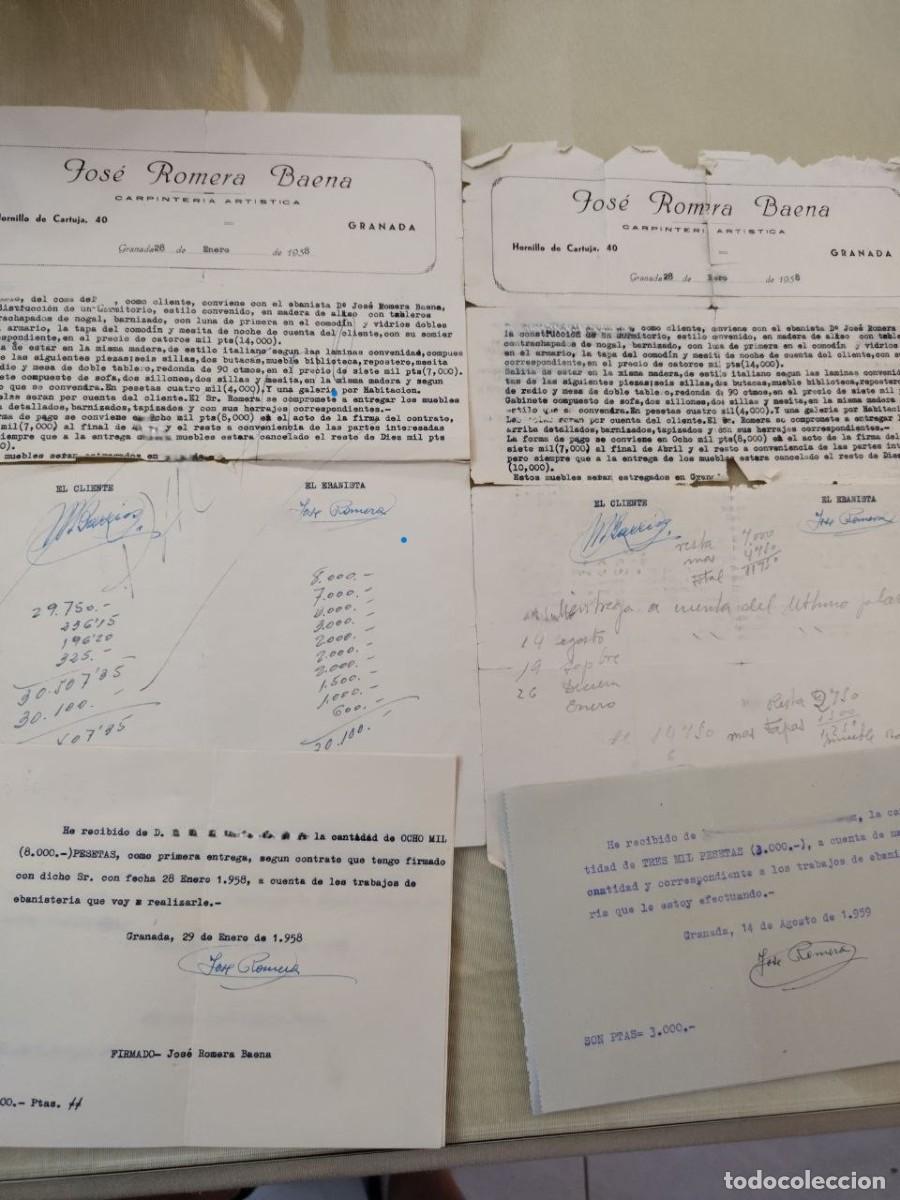 José Romera Baena
CARPINTERIA ARTISTICA
Hornillo de Cartuja, 40
GRANADA
Granada 28 de Enero de 1958
, del coms del , como cliente, conviene con el ebanista Dº José Romera Baena,
un dormitorio, estilo convenido, en madera de aliso con tableros
rachapados de nogal, barnizado, con luna de primera en el comodin y vidrios dobles
armario, la tapa del comodin y mesita de noche de cuenta del cliente, con su somier
spondiente, en el precio de catorce mil pts(14,000).
de estar en la misma madera, de estilo italiano segun las laminas convenidas, compues
las siguientes piezas: seis sillas, dos butacas, mueble biblioteca, repostero, mesita
adio y mesa de doble tablero, redonda de 90 ctmos, en el precio de siete mil pts(7,000).
ete compuesto de sofa, dos sillones, dos sillas y mesita, en la misma madera y segun
o que se convendra. En pesetas cuatro mil(4,000). Y una galeria por Habitacion.
elas seran por cuenta del cliente. El Sr. Romera se compromete a entregar los muebles
a detallados, barnizados, tapizados y con sus herrajes correspondientes.-
ma de pago se conviene en Ocho mil pts(8,000) en el acto de la firma del contrato,
mil(7,000) al final de y el resto a conveniencia de las partes interesadas
siempre que a la entrega muebles estara cancelado el resto de Diez mil pts
0).
muebles serán entregados en
EL CLIENTE
EL EBANISTA
Jose Romera
29.750.-
236'15
196'20
325.-
30.507'35
30.100.-
407'35
8.000.-
7.000.-
4.000.-
3.000.-
2000.-
2.000.-
2.000.-
1.500.-
1.000.-
600.-
30.100.-
José Romera Baena
CARPINTERIA ARTISTICA
Hornillo de Cartuja, 40
GRANADA
Granada 28 de de 1958
, como cliente, conviene con el ebanista Dº José Romera
la construcción de un dormitorio, estilo convenido, en madera de aliso con table
contrachapados de nogal, barnizado, con luna de primera en el comodin y vidrios
en el armario, la tapa del comodin y mesita de noche de cuenta del cliente, con su
correspondiente, en el precio de catorce mil pts(14,000).
Salita de estar en la misma madera, de estilo italiano segun las laminas conveni
tas de las siguientes piezas: seis sillas, dos butacas, mueble biblioteca, repostero
de radio y mesa de doble tablero, redonda de 90 ctmos, en el precio de siete mil
Gabinete compuesto de sofa, dos sillones, dos sillas y mesita, en la misma madera
estilo que se convendra. En pesetas cuatro mil(4,000). Y una galeria por Habitac
Las telas seran por cuenta del cliente. El Sr. Romera se compromete a entregar l
arriba detallados, barnizados, tapizados y con sus herrajes correspondientes.-
La forma de pago se conviene en Ocho mil pts(8,000) en el acto de la firma del
siete mil(7,000) al final de Abril y el resto a conveniencia de las partes inte
pero siempre que a la entrega de los muebles estara cancelado el resto de Diez
(10,000).
Estos muebles seran entregados en Gran
EL CLIENTE
EL EBANISTA
Jose Romera
resta 7.000
mas 4750
total 11750
entrega a cuenta del ultimo plazo
14 agosto
19 Sepbre
26
Enero
Resta 2750
14750 mas tapas 1500
He recibido de D. la cantidad de OCHO MIL
(8.000.-)PESETAS, como primera entrega, segun contrato que tengo firmado
con dicho Sr. con fecha 28 Enero 1.958, a cuenta de los trabajos de
ebanisteria que voy a realizarle.-
Granada, 29 de Enero de 1.958
Jose Romera
FIRMADO- José Romera Baena
00.- Ptas.
He recibido de , la can
tidad de TRES MIL PESETAS (3.000.-), a cuenta de ma
cantidad y correspondiente a los trabajos de ebani
ría que le estoy efectuando.-
Granada, 14 de Agosto de 1.959
Jose Romera
SON PTAS= 3.000.-
todocoleccion